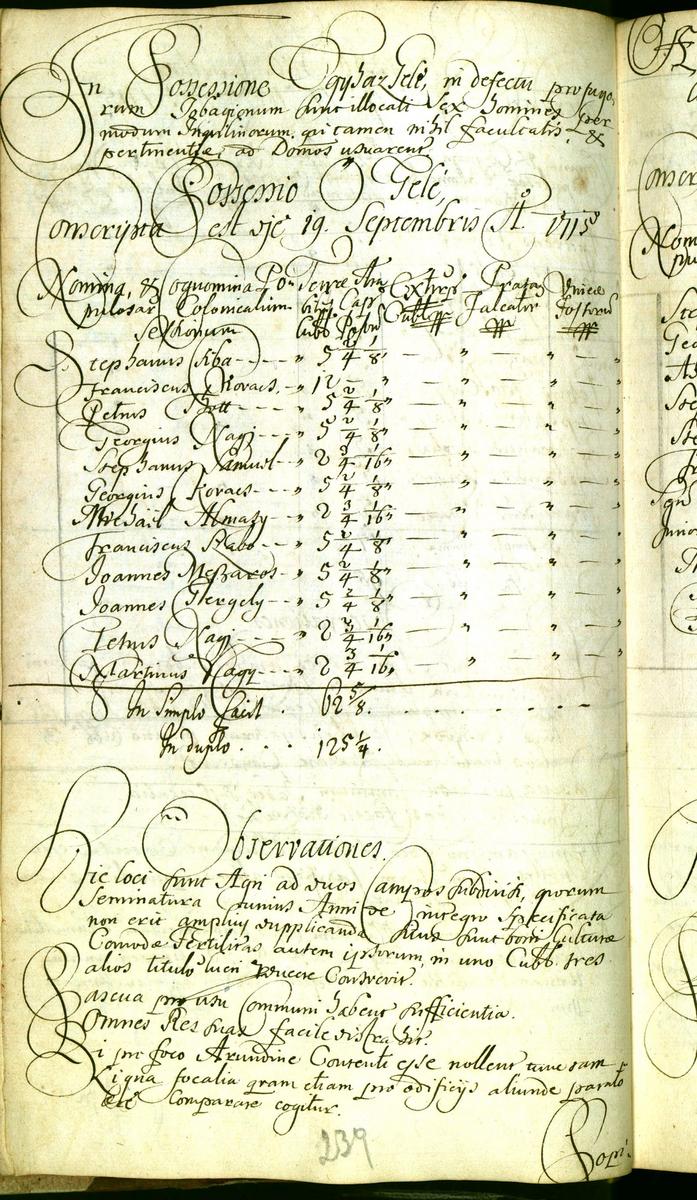 In Possessione Egyhaz Gelé, in defectu profugo,
rum Jobagionum sunt illocati sex homines per
modum Inquilinorum, qui tamen nihil facultatis, &
pertinentiæ, ad Domos usuarent
Possessio O Gelé,
Conscripta est die 19. Septembris Aō. 1715
Nomina, & Cognomina Po- Terræ Ara Extirp: Prata Vineæ
pulosar Colonicalium bilis Cap: Falcator Fossorum
Sessionum Cubb Poson Cubb
Stephanus Csiba - - " 5 2/4 1/8 " — " — " — "
Franciscus Kovacs, - " 12 " — " — " — "
Petrus Bott - - - - " 5 2/4 1/8 " — " — " — "
Georgius Nagj - - - " 5 2/4 1/8 " — " — " — "
Stephanus Samuel - - " 2 3/4 1/16 " — " — " — "
Georgius Kovacs - - - " 5 2/4 1/8 " — " — " — "
Michael Almasy - - " 2 3/4 1/16 " — " — " — "
Franciscus Szabo - - " 5 2/4 1/8 " — " — " — "
Joannes Meszaros - - " 5 2/4 1/8 " — " — " — "
Joannes Gergely - - - " 5 2/4 1/8 " — " — " — "
Petrus Nagj - - - " 2 3/4 1/16 " — " — " — "
Martinus Nagy - - - - " 2 3/4 1/16 " — " — " — "
In Simplo facit . 62 5/8.
In duplo . . . 125 1/4.
Observationes.
Hic loci sunt Agri ad duos Campos subdivisi, quorum
Seminatura unius Anni de integro Specificata
non erit amplius dupplicanda sunt boni Culturæ
Comodæ Fertilitas autem ipsorum, in uno Cubb. tres
alios titulo lucri ducere Consrevit.
Pascua pro usu Communi habent sufficientia.
Omnes Res suas facile distrahit.
Si pro foco Arundine Contenti esse nollent tunc tam
Ligna focalia quam etiam pro ædificijs aliunde parato
ære Comparare cogitur.
239